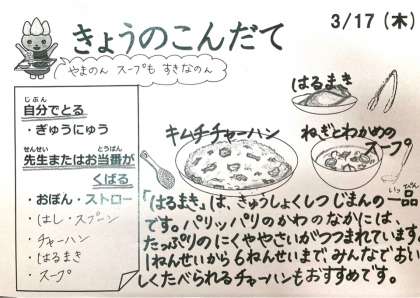 きょうのこんだて
3/17 (木)
やまのん スープも すきなのん
じぶん
自分でとる
・ぎゅうにゅう
せんせい とうばん
先生またはお当番が
くばる
・おぼん・ストロー
・はし・スプーン
・チャーハン
・はるまき
・スープ
はるまき
キムチチャーハン
ねぎとわかめの
スープ
いっぴん
「はるまき」は、きゅうしょくしつじまんの一品
です。パリッパリのかわのなかには、
たっぷりのにくややさいがつつまれています。
1ねんせいから6ねんせいまで、みんなでおい
しくたべられるチャーハンもおすすめです。